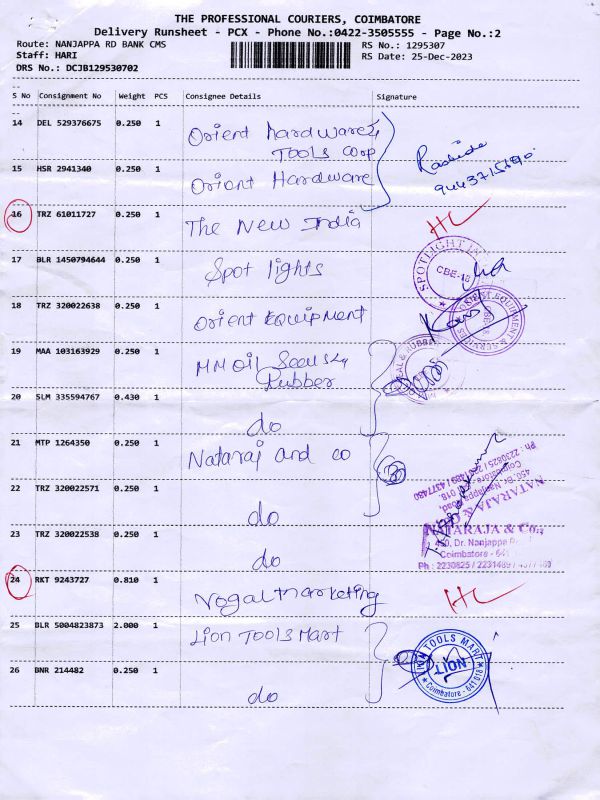 THE PROFESSIONAL COURIERS, COIMBATORE
Delivery Runsheet - PCX - Phone No.:0422-3505555 - Page No.:2
Route: NANJAPPA RD BANK CMS
RS No.: 1295307
Staff: HARI
RS Date: 25-Dec-2023
DRS No.: DCJB129530702
S No Consignment No Weight PCS Consignee Details Signature
14 DEL 529376675 0.250 1 Orient Hardware &
TOOLS CORP
15 HSR 2941340 0.250 1 Orient Hardware
16 TRZ 61011727 0.250 1 The New India
17 BLR 1450794644 0.250 1 Spot lights
SPOTLIGHT
CBE-18
18 TRZ 320022638 0.250 1 Orient Equipment
19 MAA 103163929 0.250 1 MM Oil
Rubber
20 SLM 335594767 0.430 1 do
21 MTP 1264350 0.250 1 Nataraj and co
22 TRZ 320022571 0.250 1 do
NATARAJA &
450, Dr. Nanjappa Road,
Coimbatore - 641 018.
Ph : 2230825 / 2231489 / 4377460
23 TRZ 320022538 0.250 1 do
NATARAJA & Co.,
450, Dr. Nanjappa
Coimbatore - 641
Ph : 2230825 / 2231489 / 4377460
24 RKT 9243727 0.810 1 Nogal marketing
25 BLR 5004823873 2.000 1 Lion Tools Mart
LION TOOLS MART
LION
Coimbatore - 641 018
26 BNR 214482 0.250 1 do